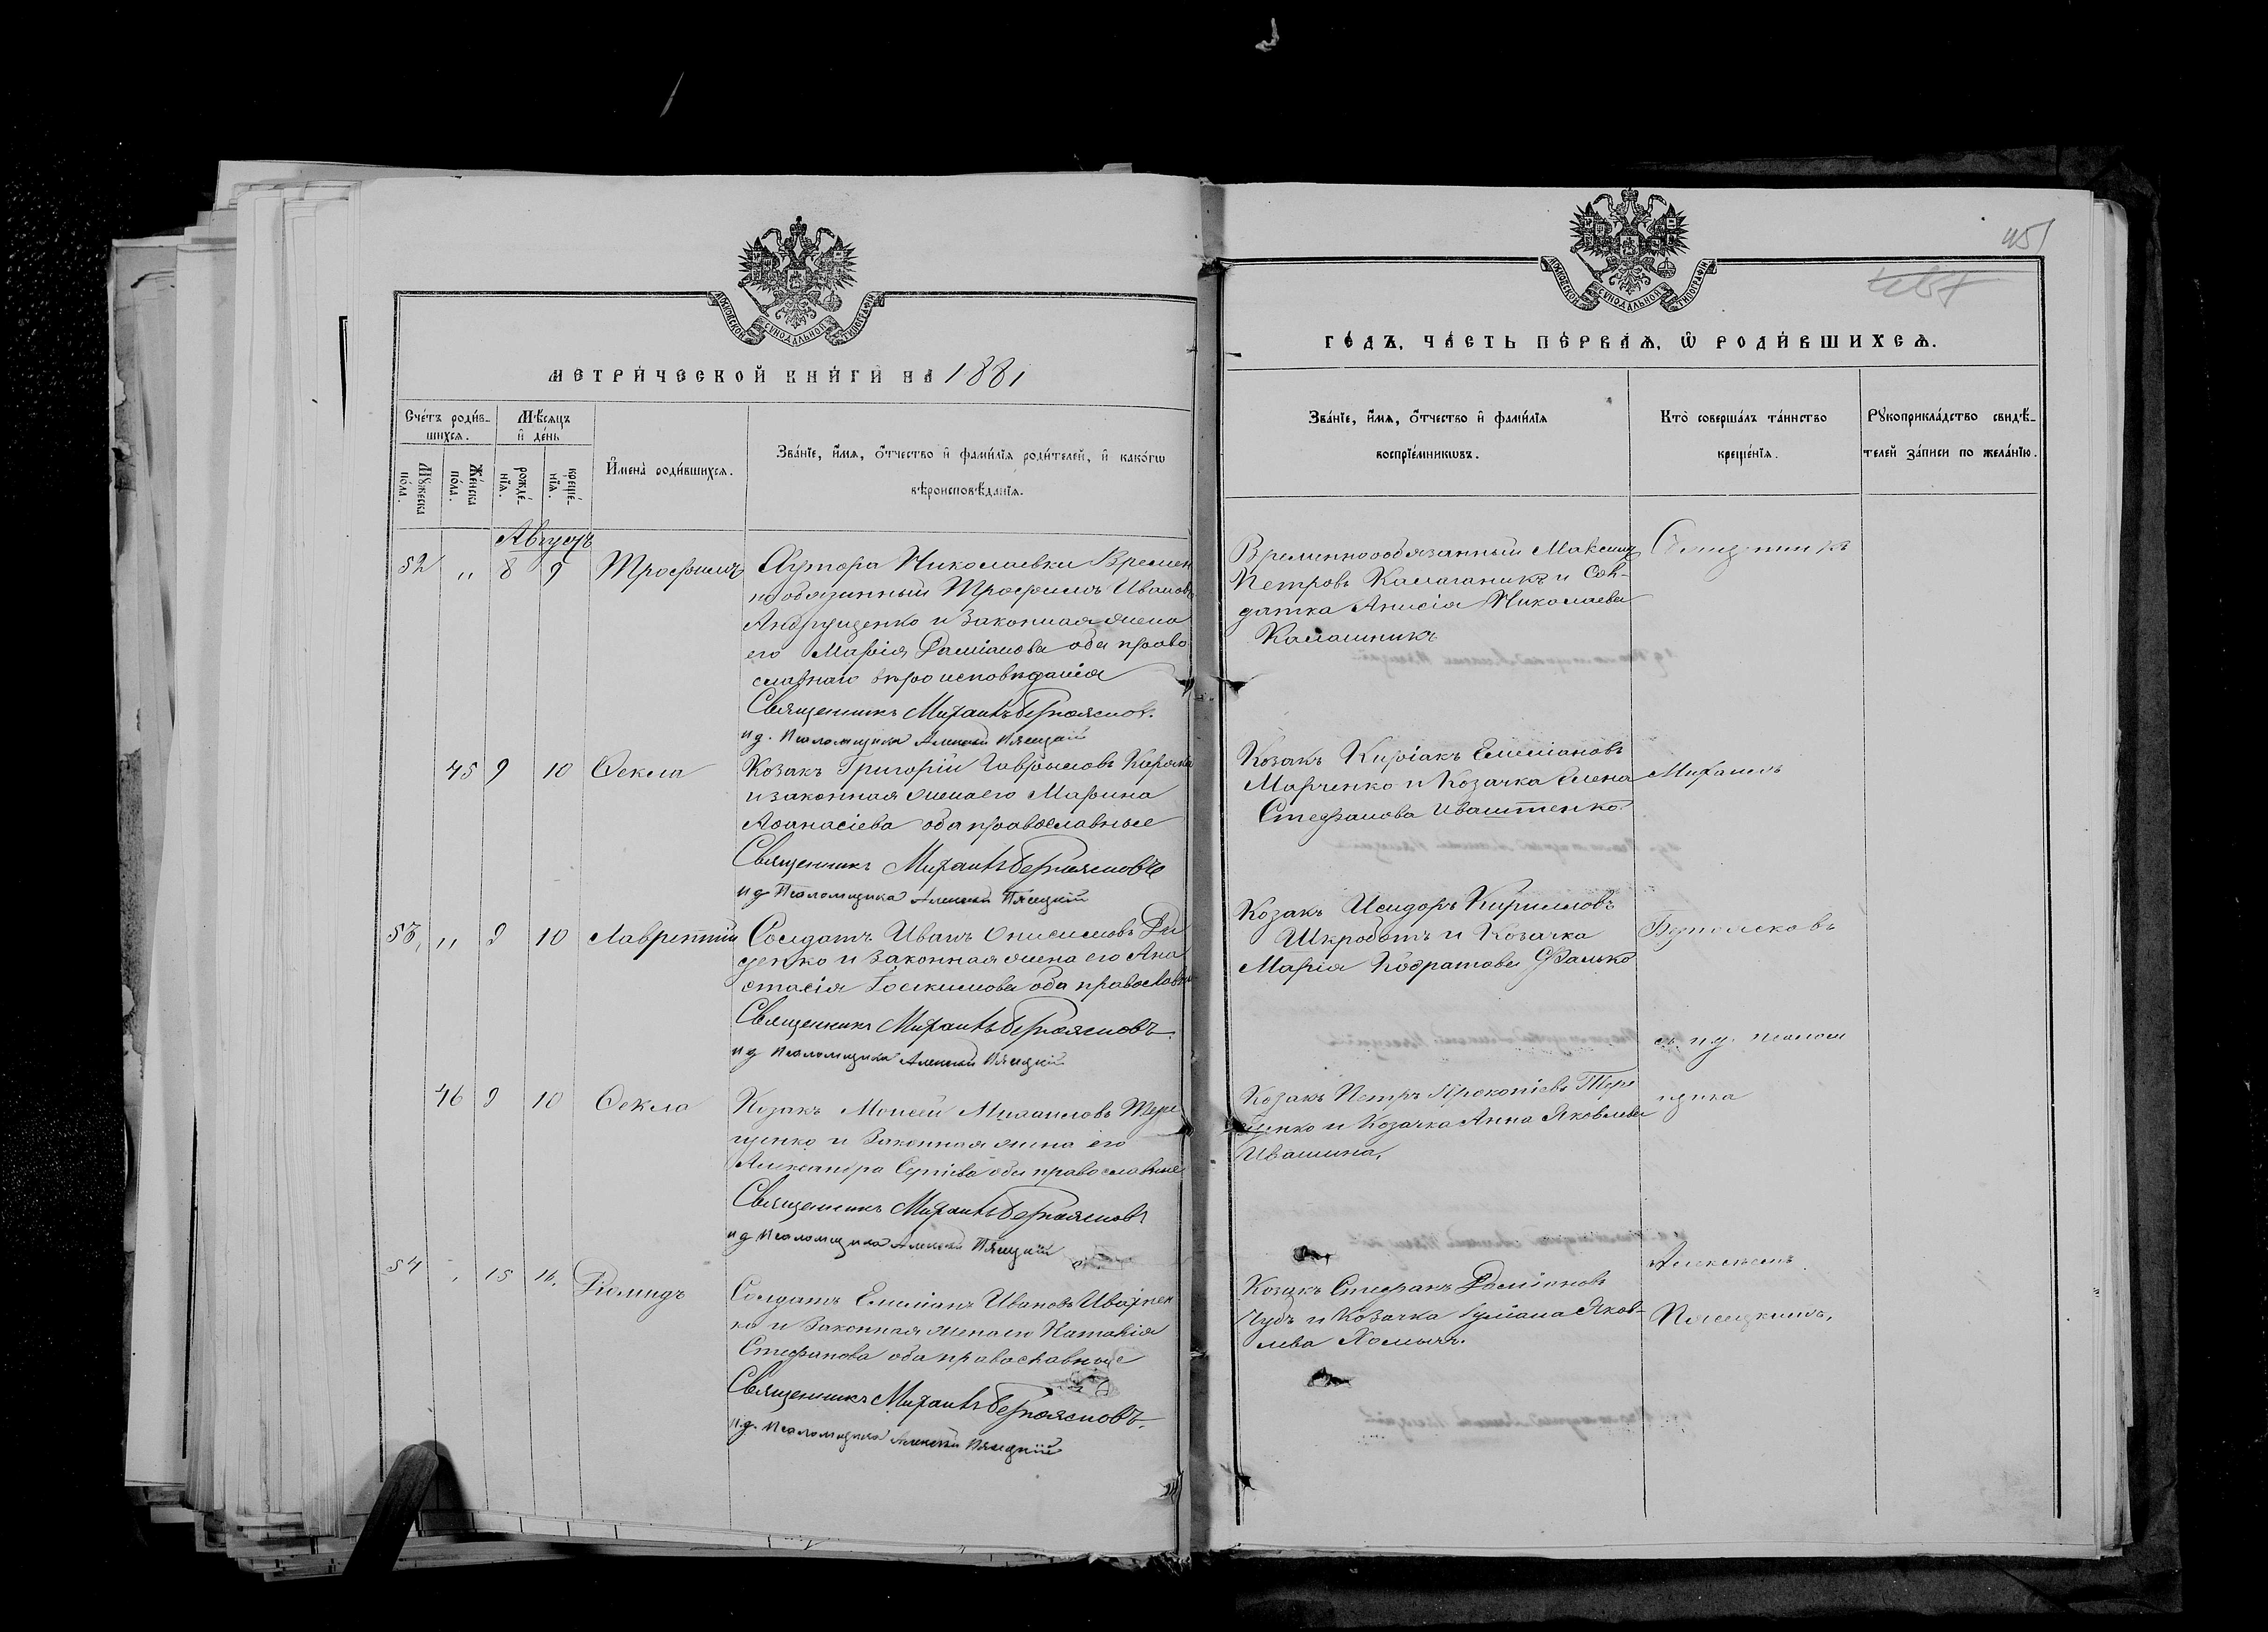 МОСКОВСКОЙ СУНОДАЛЬНОЙ ТИПОГРАФІИ
МЕТРИ́ЧЕСКОЙ КНИ́ГИ НА 1881
Сче́тъ роди́в-
шихсѧ.
Мѣ́сѧцъ
и҆ де́нь
Мꙋ́жеска
по́ла.
Же́нска
по́ла.
рожде́-
нїѧ.
креще́-
нїѧ.
И҆мена̀ роди́вшихсѧ.
Зва́нїе, и҆́мѧ, ѻ҆́тчество и҆ фами́лїѧ роди́телей, и҆ како́гѡ
вѣроисповѣ́данїѧ.
Августъ
52 „ 8 9 Трофимъ Хутора Николаевки Времен
нообязанный Трофимъ Ивановъ
Андрущенко и Законная жена
его Марія Даміанова оба право
славнаго вѣроисповѣданія
Священникъ Михаилъ
и д. Псаломщика Алексей Пясецкій
45 9 10 Ѳекла Козакъ Григорій Гавріиловъ
и законная жена его Марина
Аѳанасіева оба православные
Священникъ Михаилъ
и д Псаломщика Алексей Пясецкій
53, „ 9 10 Лаврентій Солдатъ Иванъ Онисимовъ Ди
денко и Законная жена его Ана
стасія Іоакимова оба православн
Священникъ Михаилъ
и д Псаломщика Алексей Пясецкій
46 9 10 Ѳекла Козакъ Моисей Михаиловъ Тере
щенко и Законная жена его
Александра Сергіева оба православные
Священникъ Михаилъ
и д Псаломщика Алексей Пясецкій
54 „ 15 16. Діомидъ Солдатъ Емиліанъ Ивановъ Ивахнен
ко и Законная жена его Наталія
Стефанова оба православные
Священникъ Михаилъ
и.д. Псаломщика Алексей Пясецкій
451
МОСКОВСКОЙ СУНОДАЛЬНОЙ ТИПОГРАФІИ
ГО́ДЪ, ЧА́СТЬ ПЕ́РВАѦ, Ѡ҆ РОДИ́ВШИХСѦ.
Зва́нїе, и҆́мѧ, ѻ҆́тчество и҆ фами́лїѧ
воспрїе́мникѡвъ.
Кто̀ соверша́лъ та́инство
креще́нїѧ.
Рꙋкоприкла́дство свидѣ́-
телей за́писи по жела́нїю.
Временнообязанный Максимъ
Петровъ Калашникъ и Сол-
датка Анисія Николаева
Калашникъ
Священникъ
Козакъ Киріакъ Емиліановъ
Марченко и Козачка Елена
Стефанова Ивашенко.
Михаилъ
Козакъ Исидоръ Кирилловъ
Шкроботъ и Козачка
Марія
Козакъ Петръ Прокопіевъ Тере
щенко и Козачка Анна Яковлева
Ивашина.
съ и.д. псалом
щика
Козакъ Стефанъ Даміановъ
Чубъ и Козачка Іуліана Яков-
лева Хомычъ.
Алексеемъ
Пясецкимъ.